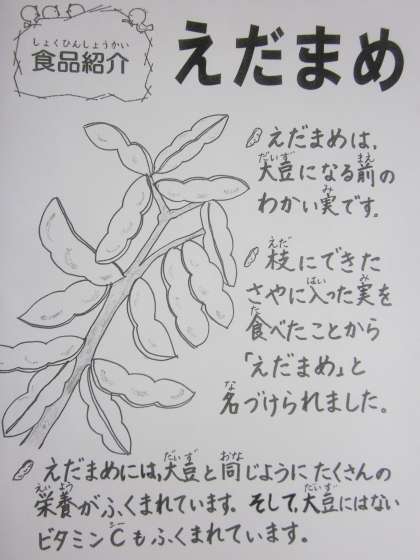 しょくひんしょうかい
食品紹介
えだまめ
えだまめは、
だいず まえ
大豆になる前の
み
わかい実です。
えだ
枝にできた
はい み
さやに入った実を
た
食べたことから
「えだまめ」と
な
名づけられました。
だいず おな
えだまめには、大豆と同じようにたくさんの
えいよう
栄養がふくまれています。そして、大豆にはない
だいず
シー
ビタミンCもふくまれています。